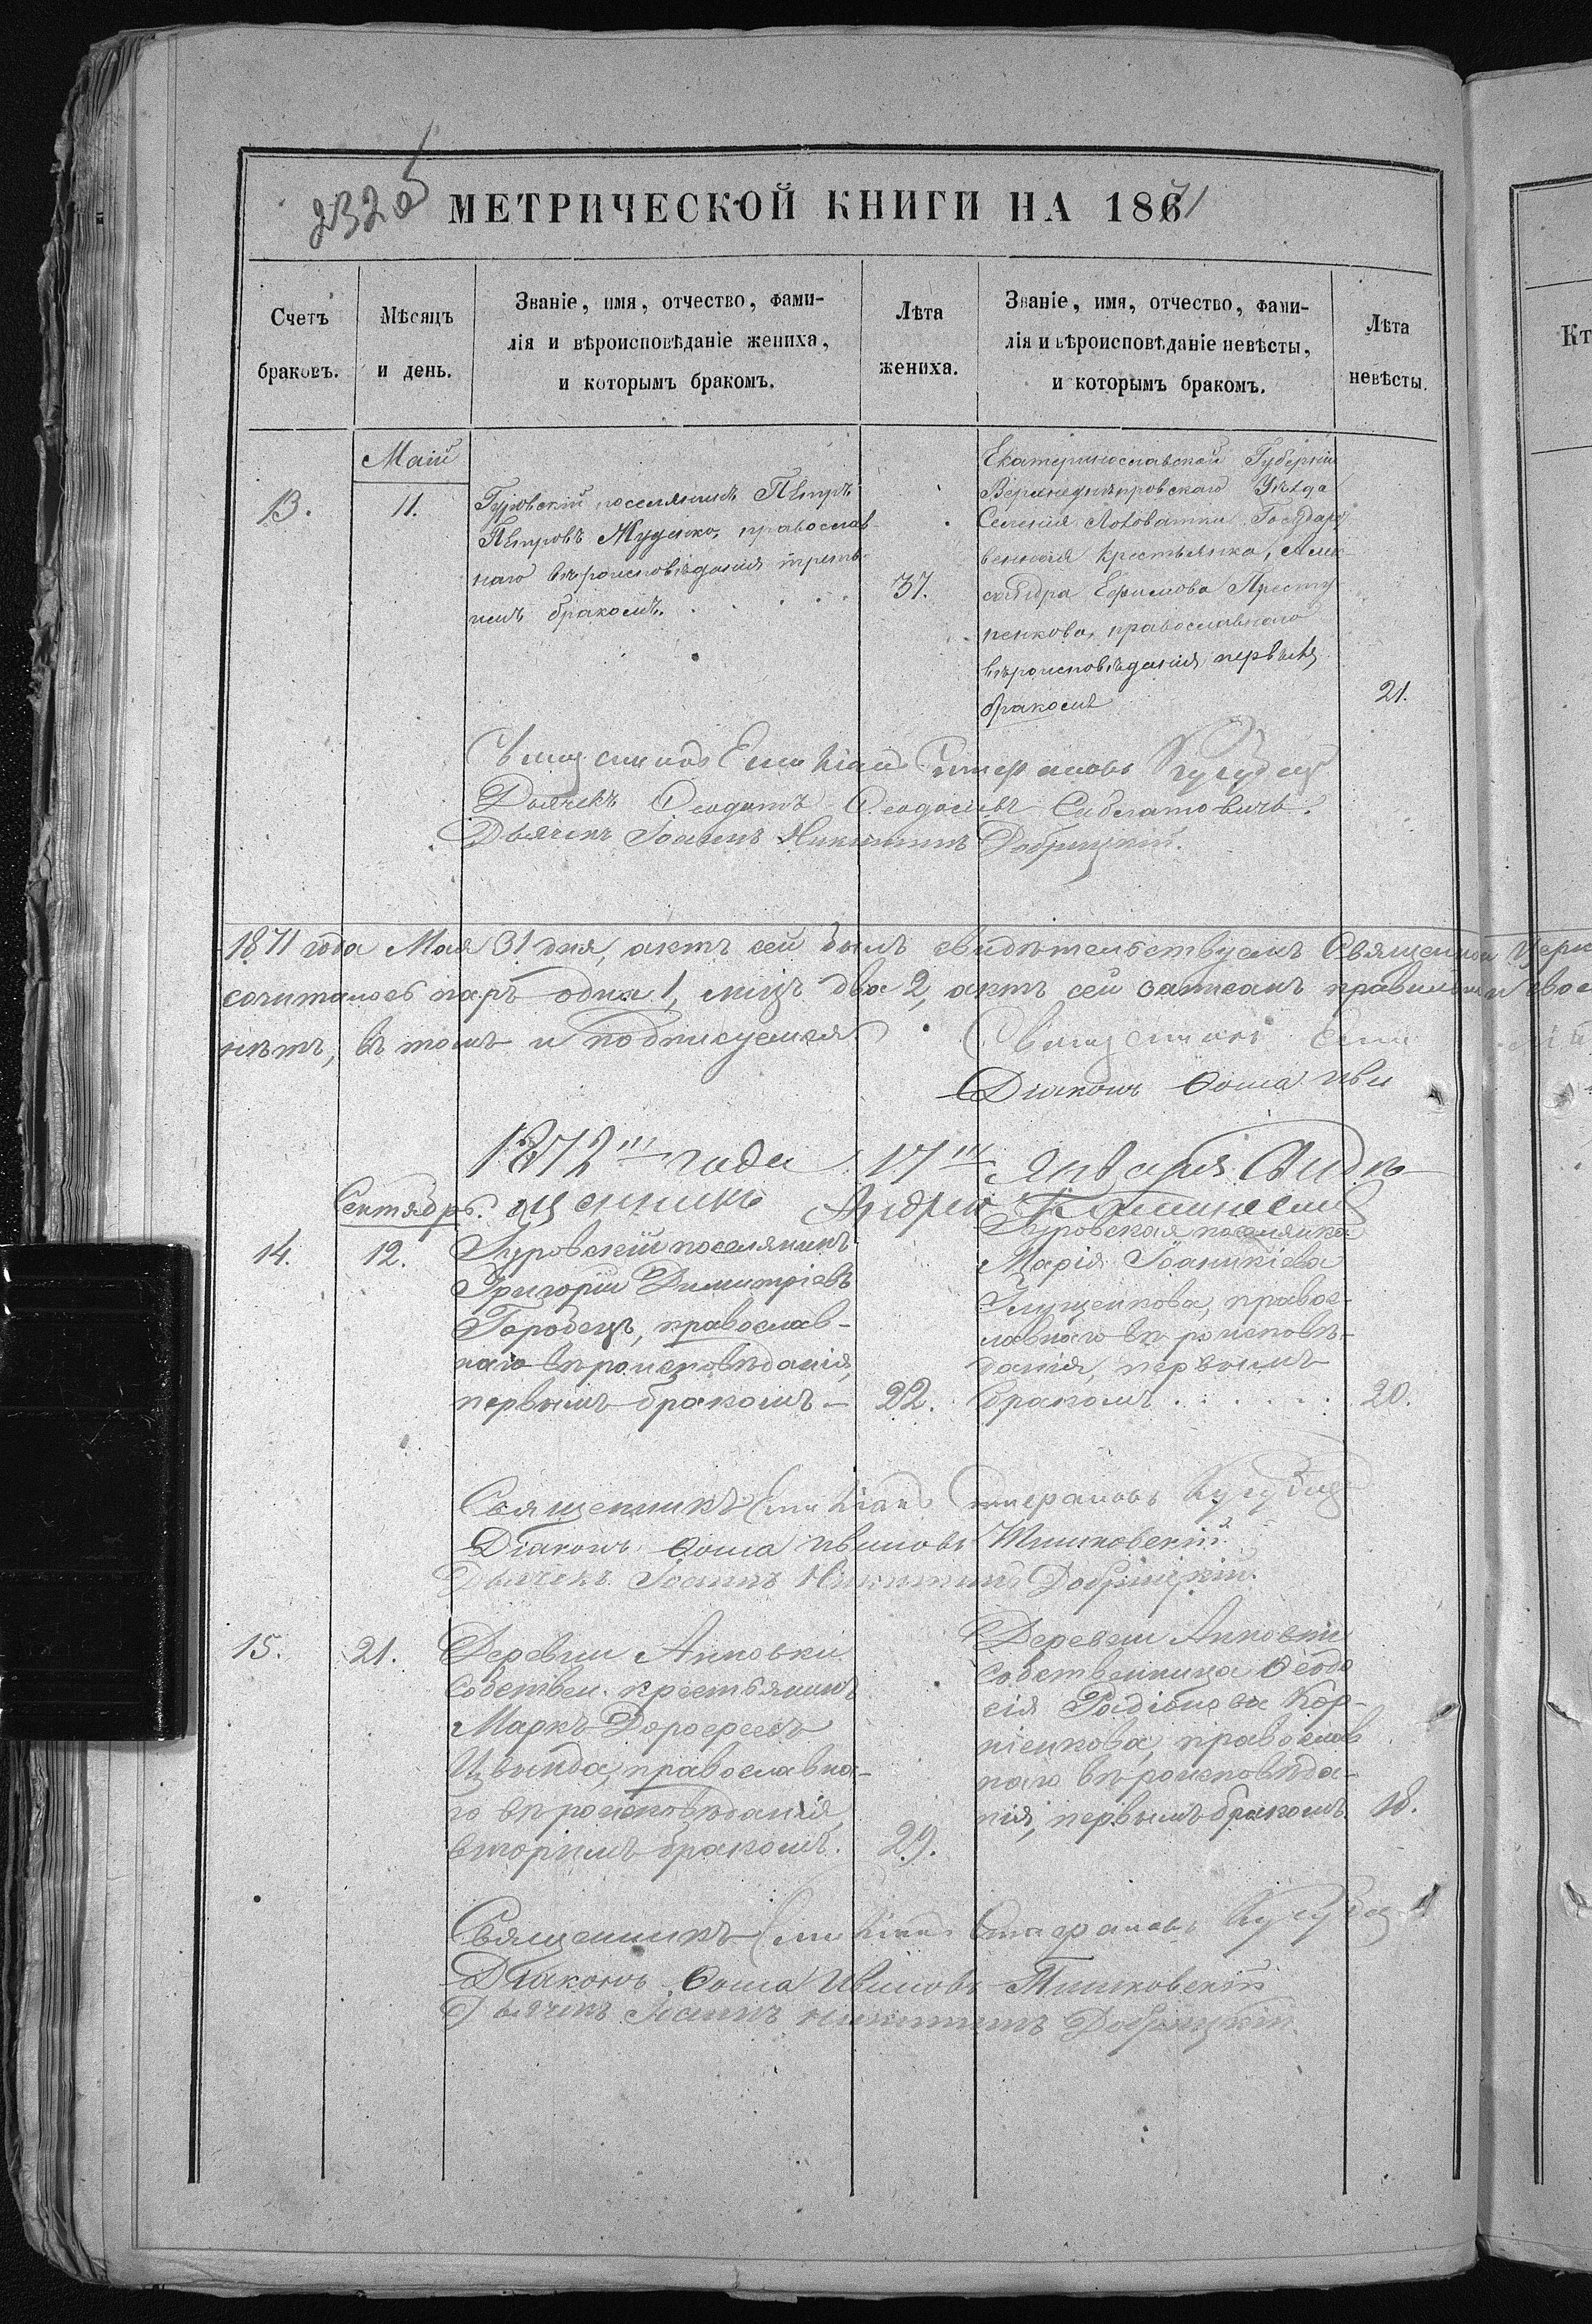 2320 5
МЕТРИЧЕСКОЙ КНИГИ НА 1871
Счетъ
браковъ.
Мѣсяцъ
и день.
Званіе, имя, отчество, фами-
лія и вѣроисповѣданіе жениха,
и которымъ бракомъ.
Лѣта
жениха.
Званіе, имя, отчество, фами-
лія и вѣроисповѣданіе невѣсты,
и которымъ бракомъ.
Лѣта
невѣсты.
Кт
Маій
13.
11.
Гуровскій поселянинъ Петръ
Петровъ православ-
наго вѣроисповѣданія треть-
имъ бракомъ.
37.
Екатеринославской Губерніи
Верхнеднѣпровскаго Уѣзда
Селенія Лозоватки Государс
венная крестьянка, Алек
сандра Ефимова
православнаго
вѣроисповѣданія, первымъ
бракомъ
21.
Священникъ Стефановъ
Дьячекъ Ѳеодотъ Ѳеодосіевъ
Дьячекъ Іоаннъ Никитинъ Добрицкій.
1871 года Мая 31 дня, актъ сей былъ свидѣтельствуемъ Священно Церк
сочиталось паръ одна 1, лицъ два 2, актъ сей записанъ правильно и
нѣтъ, въ томъ и подписуемся.
Священникъ
Діаконъ Ѳома Ива
1872 года 17 Января
Андрей
Сентябрь.
14.
12.
Гуровскій поселянинъ
Григорій Димитріевъ
Городецъ, православ-
наго вѣроисповѣданія,
первымъ бракомъ —
22.
Гуровская поселянка
Марія Іоаникіева
Глущенкова, правос-
лавнаго вѣроисповѣ-
данія, первымъ
бракомъ . . . . . .
20.
Священникъ Стефановъ
Діаконъ Ѳома Ивановъ
Дьячекъ Іоаннъ Никитинъ Добрицкій.
15.
21.
Деревни Анновки
Собствен. крестьянинъ
Маркъ Дорофеевъ
православна-
го вѣроисповѣданія,
вторимъ бракомъ.
29.
Деревни Анновки
собственница Ѳеодо
сія Радіонова Кор-
ніенкова, православ
наго вѣроисповѣда-
нія, первымъ бракомъ.
18.
Священникъ Стефановъ
Діаконъ Ѳома Ивановъ
Дьячекъ Іоаннъ Никитинъ Добрицкій.